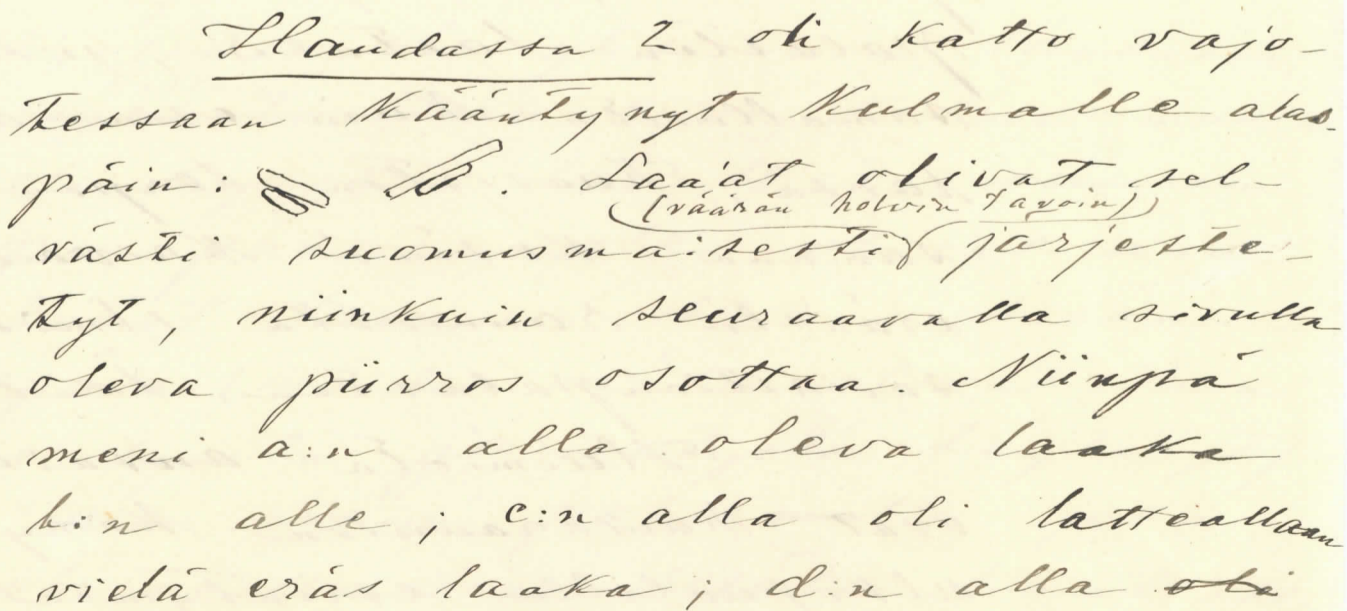 Haudassa 2 oli katto vajo-
tessaan kääntynyt kulmalle alas-
päin: . Laa'at olivat sel-
(väärän holvin tavoin)
västi suomusmaisesti järjeste-
tyt, niinkuin seuraavalla sivulla
oleva piirros osottaa. Niinpä
meni a:n alla oleva laaka
b:n alle; c:n alla oli latteallaan
vielä eräs laaka; d:n alla oli